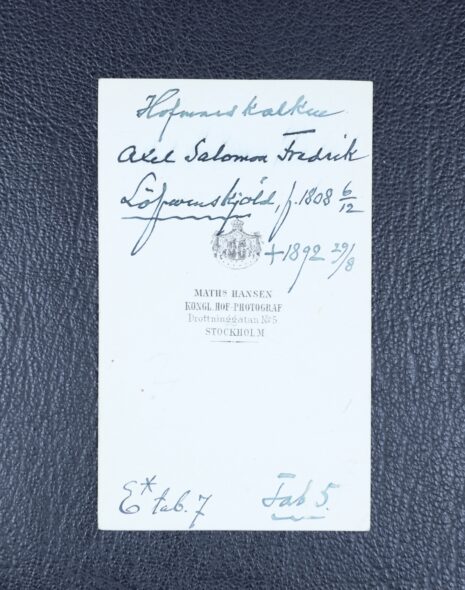 Hofmarskalken
Axel Salomon Fredrik
Löfvenskjöld, f. 1808 6/12
+ 1892 29/8
MATHS HANSEN
KONGL. HOF-PHOTOGRAF
Drottninggatan No 5
STOCKHOLM
E* tab. 7
Tab 5.